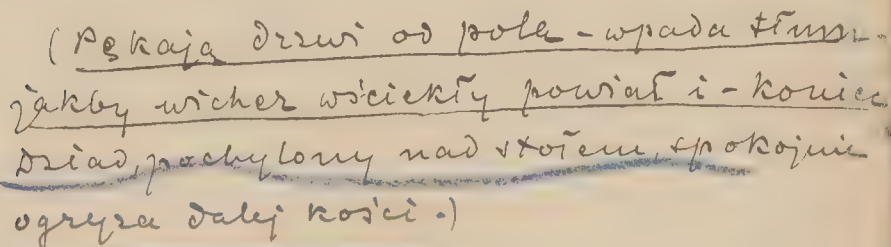 (Pękają drzwi od pola - wpada tłum -
jakby wicher wściekły powiał i - koniec
Dziad, pochylony nad stołem, spokojnie
ogryza dalej kości.)